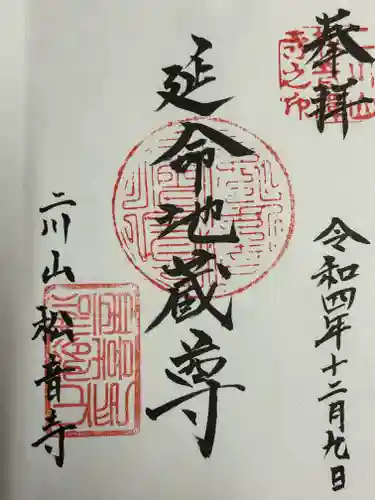 奉拝
令和四年十二月九日
延命地蔵尊
二川山 松音寺